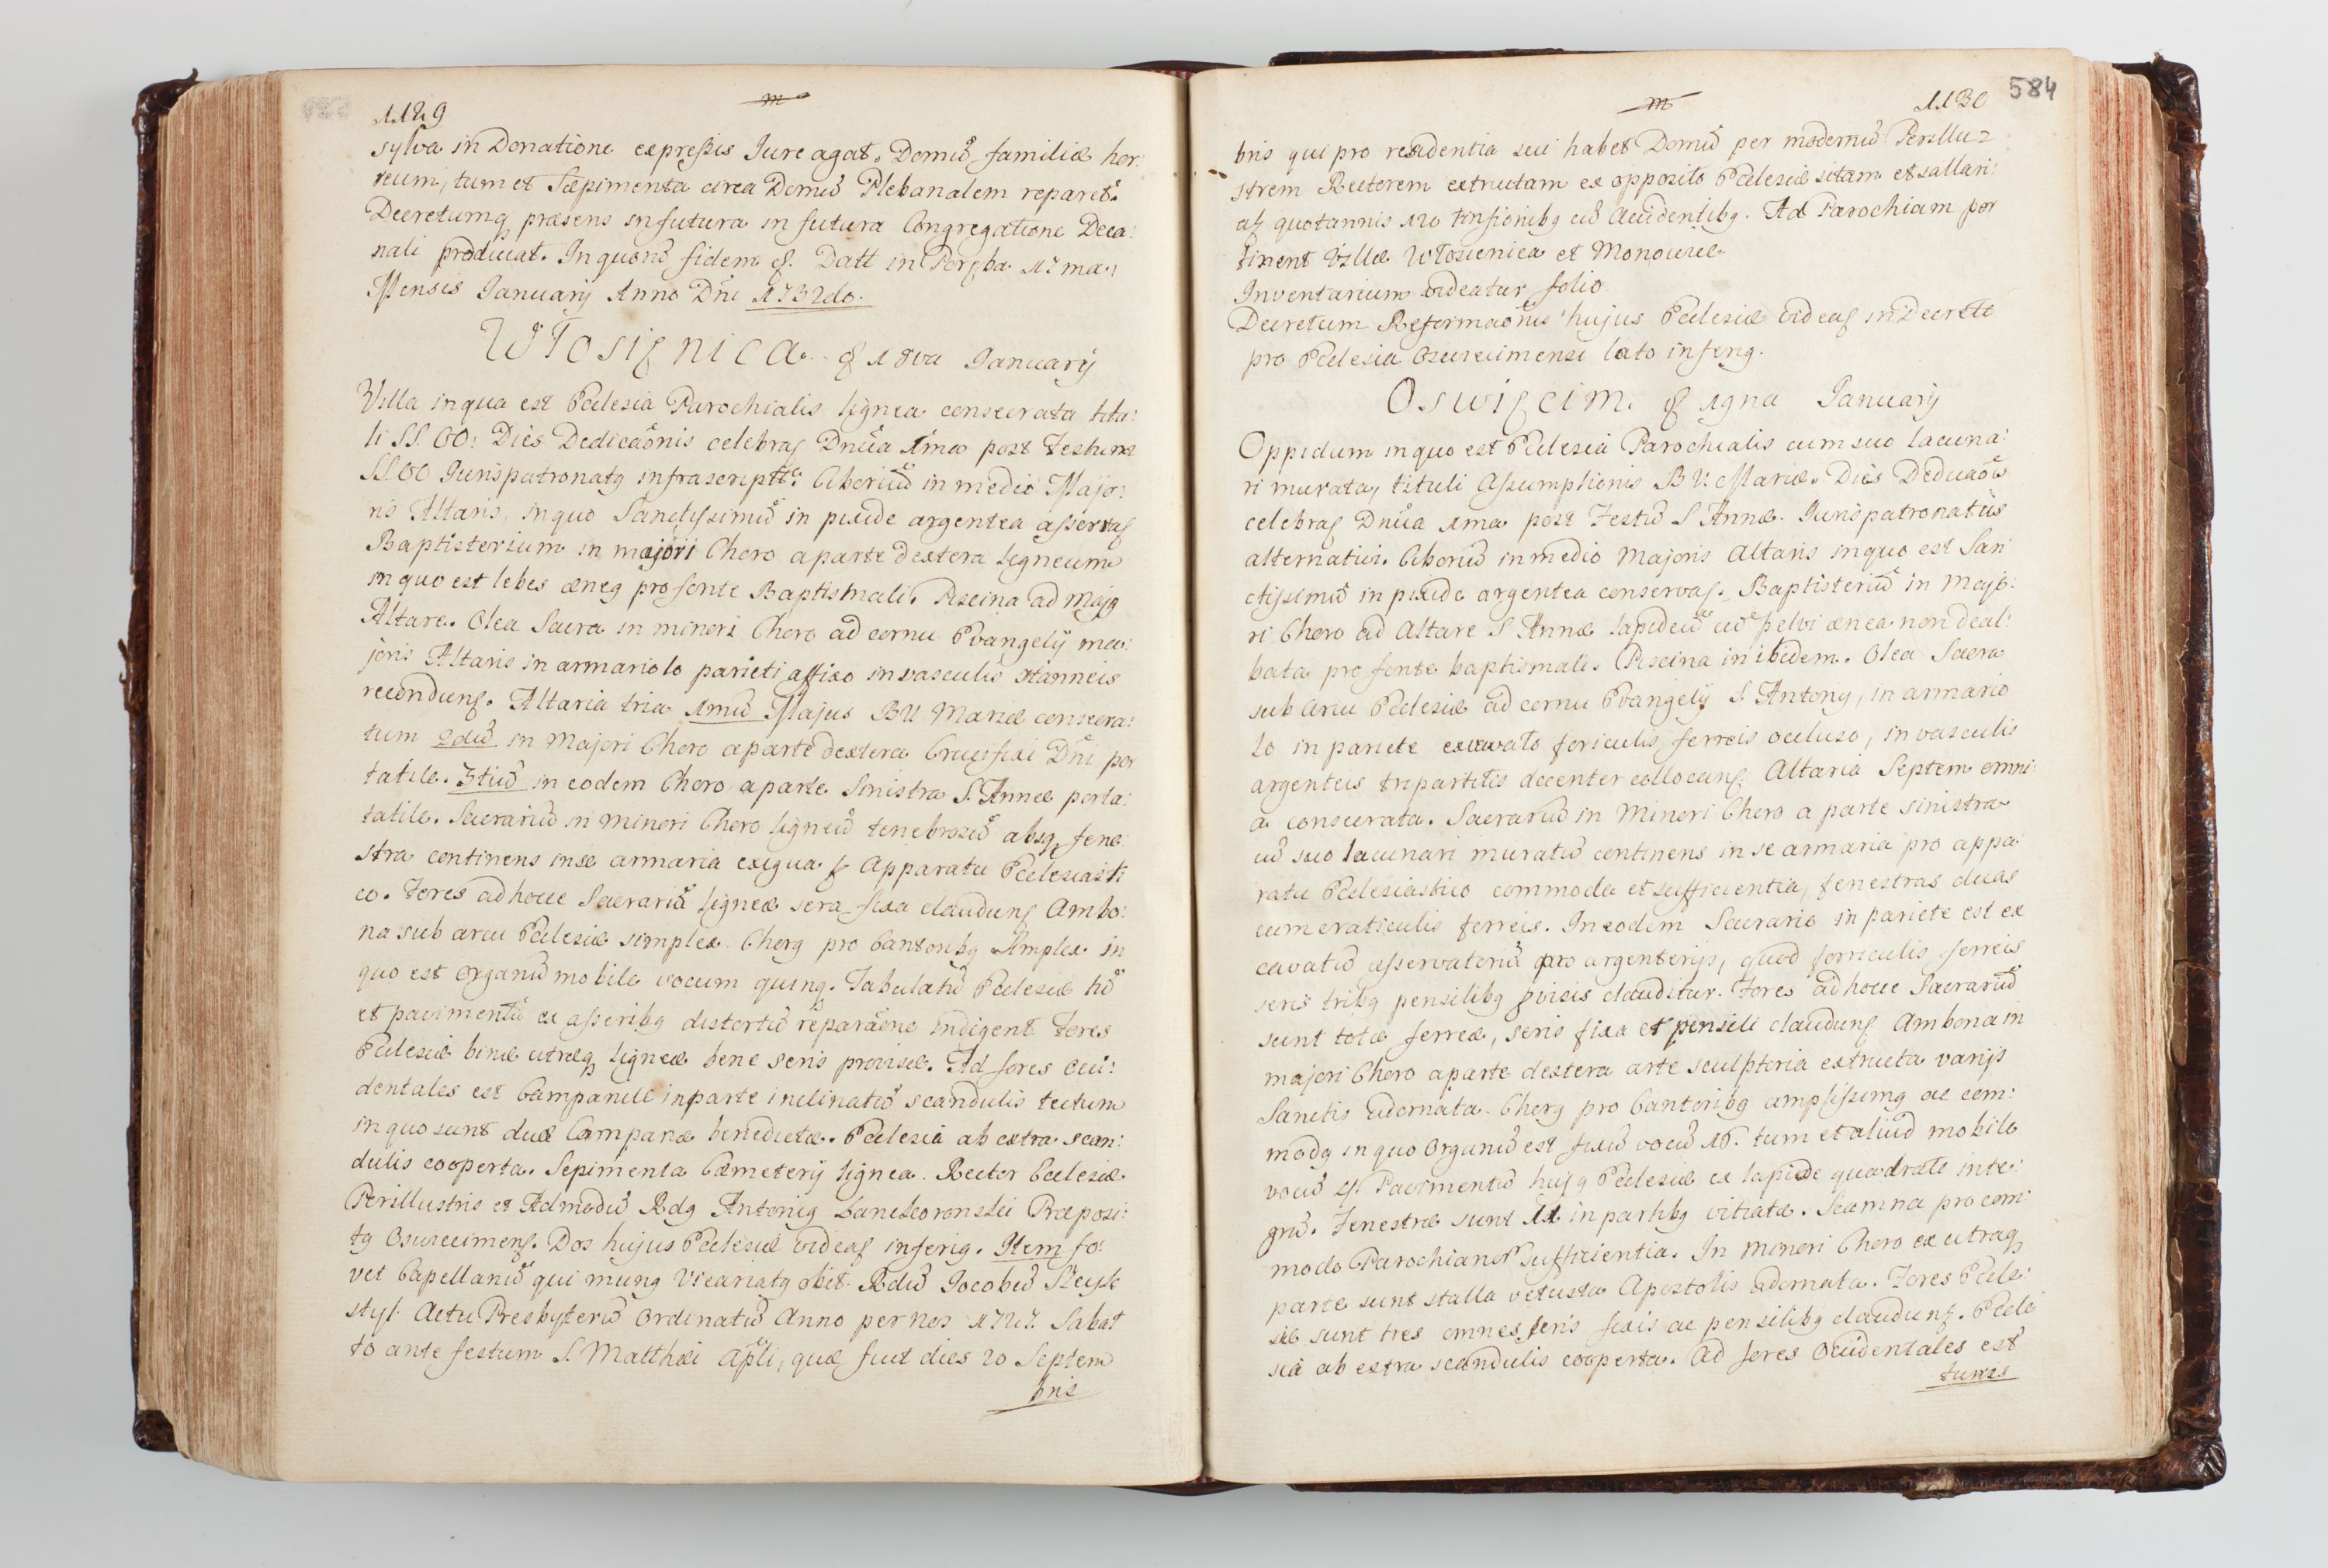 1129
m
sylva in Donatione expressis Jure agat. Domū familiæ hor:
reum, tum et Sæpimenta circa Domū Plebanalem reparet.
Decretumq præsens in futura in futura Congregatione Deca:
nali producat. In quorū fidem &. Datt in Poręba 17 ma.
Mensis Januarij Anno Dñi 1732do.
Włosięnica. & 18va Januarij
Villa in qua est Ecclesia Parochialis lignea consecrata titu:
li SS. OO: Dies Dedicaōnis celebraʃ Dnīca 1ma post Festum
SS. OO Jurispatronatg infrascriptti. Ciboriū in medio Majo:
ris Altaris, in quo Sanctissimū in pixide argentea asservaʃ
Baptisterium in majori Choro a parte dextera ligneum
in quo est lebes æneg pro fonte Baptismali. Piscina ad majg
Altare. Olea Sacra in minori Choro ad cornu Evangelij ma:
joris Altaris in armariolo parieti affixo in vasculis stanneis
recondunʃ. Altaria tria 1mū Majus BV Mariæ consecra:
tum 2dū in Majori Choro a parte dextera Crucifixi Dñi por
tatile. 3tiū in eodem Choro a parte Sinistra S. Annæ porta:
tatile. Sacrariū in minori Choro ligneū tenebrosū absq fene
stra continens in se armaria exigua & Apparatu Ecclesiasti
co. Fores ad hocce Sacrariū ligneæ sera fixa claudunʃ Ambo:
na sub arcu Ecclesiæ simplex. Chorg pro Cantoribg simplex in
quo est organū mobile vocum quinq. Tabulatū Ecclesiæ tū
et pavimentū ex asseribg distortū reparāone indigent. Fores
Ecclesiæ binæ utræq ligneæ bene seris provisæ. Ad fores Occi:
dentales est Campanile in parte inclinatū scandulis tectum
in quo sunt duæ Campanæ benedictæ. Ecclesia ab extra scan:
dulis cooperta. Sepimenta Cæmeterij lignea. Rector Ecclesiæ
Perillustris et Admodū Rdg Antonig Lanckoronski Præposi:
tg Osviecimenʃ. Dos hujus Ecclesiæ videaʃ inferig. Item fo:
vet Capellanū qui mung Vicariatg obit Rdū Jacobū
Actu Presbyterū ordinatū Anno per nos 1727. Sabat
to ante festum S. Matthæi Apli, quæ fuit dies 20 Septem
bris
584
1130
m
bris qui pro residentia sui habet Domū per modernū Perillu=
strem Rectorem extructam ex opposito Ecclesiæ sitam et sallari:
aʃ quotannis 120 cū accidentibg. Ad Parochiam per
tinent Villæ Włosienica et Monowice.
Inventarium videatur folio
Decretum Reformaōnis hujus Ecclesiæ videaʃ in Decreto
pro Ecclesia Osviecimensi lato inferig.
Oswięcim. & 19na Januarij
Oppidum in quo est Ecclesia Parochialis cum suo lacuna:
ri murata, tituli Assumptionis BV: Mariæ. Dies Dedicaōis
celebraʃ Dnīca 1ma post Festū S Annæ. Jurispatronatus
alternativi. Ciboriū in medio Majoris Altaris in quo est San
ctissimū in pixide argentea conservaʃ. Baptisteriū in Majo:
ri Choro ad Altare S Annæ lapideū cū pelvi ænea non deal:
bata pro fonte baptismali. Piscina inibidem. Olea Sacra
sub arcu Ecclesiæ ad cornu Evangelij S. Antonij, in armario
lo in pariete excavato foriculis ferreis occluso, in vasculis
argenteis tripartitis decenter collocanʃ. Altaria Septem omni:
a consecrata. Sacrariū in Minori Choro a parte sinistra
cū suo lacunari muratū continens in se armaria pro appa
ratu Ecclesiastico commoda et sufficientia, fenestras duas
cum craticulis ferreis. In eodem Sacrario in pariete est ex
cavatū asservatoriū pro argenterijs, quod forriculis ferreis
seris tribg pensilibg provisis clauditur. Fores ad hocce Sacrariū
sunt totæ ferreæ, seris fixa et pensili claudunʃ Ambona in
majori Choro a parte dextera arte sculptoria extructa varijs
Sanctis adornata. Chorg pro Cantoribg amplissimg ac com:
modg in quo Organū est fixū vocū 16. tum et aliud mobile
vocū 4. Pavimentū hujg Ecclesiæ ex lapide quadrato inte:
grū. Fenestræ sunt 11 in partibg vitiatæ. Scamna pro com:
modo Parochianor sufficientia. In minori Choro ex utraq
parte sunt stalla vetusta Apostolis adornata. Fores Eccle:
siæ sunt tres omnes seris fixis ac pensilibg claudunʃ. Eccle
sia ab extra scandulis cooperta. Ad fores Occidentales est
turris